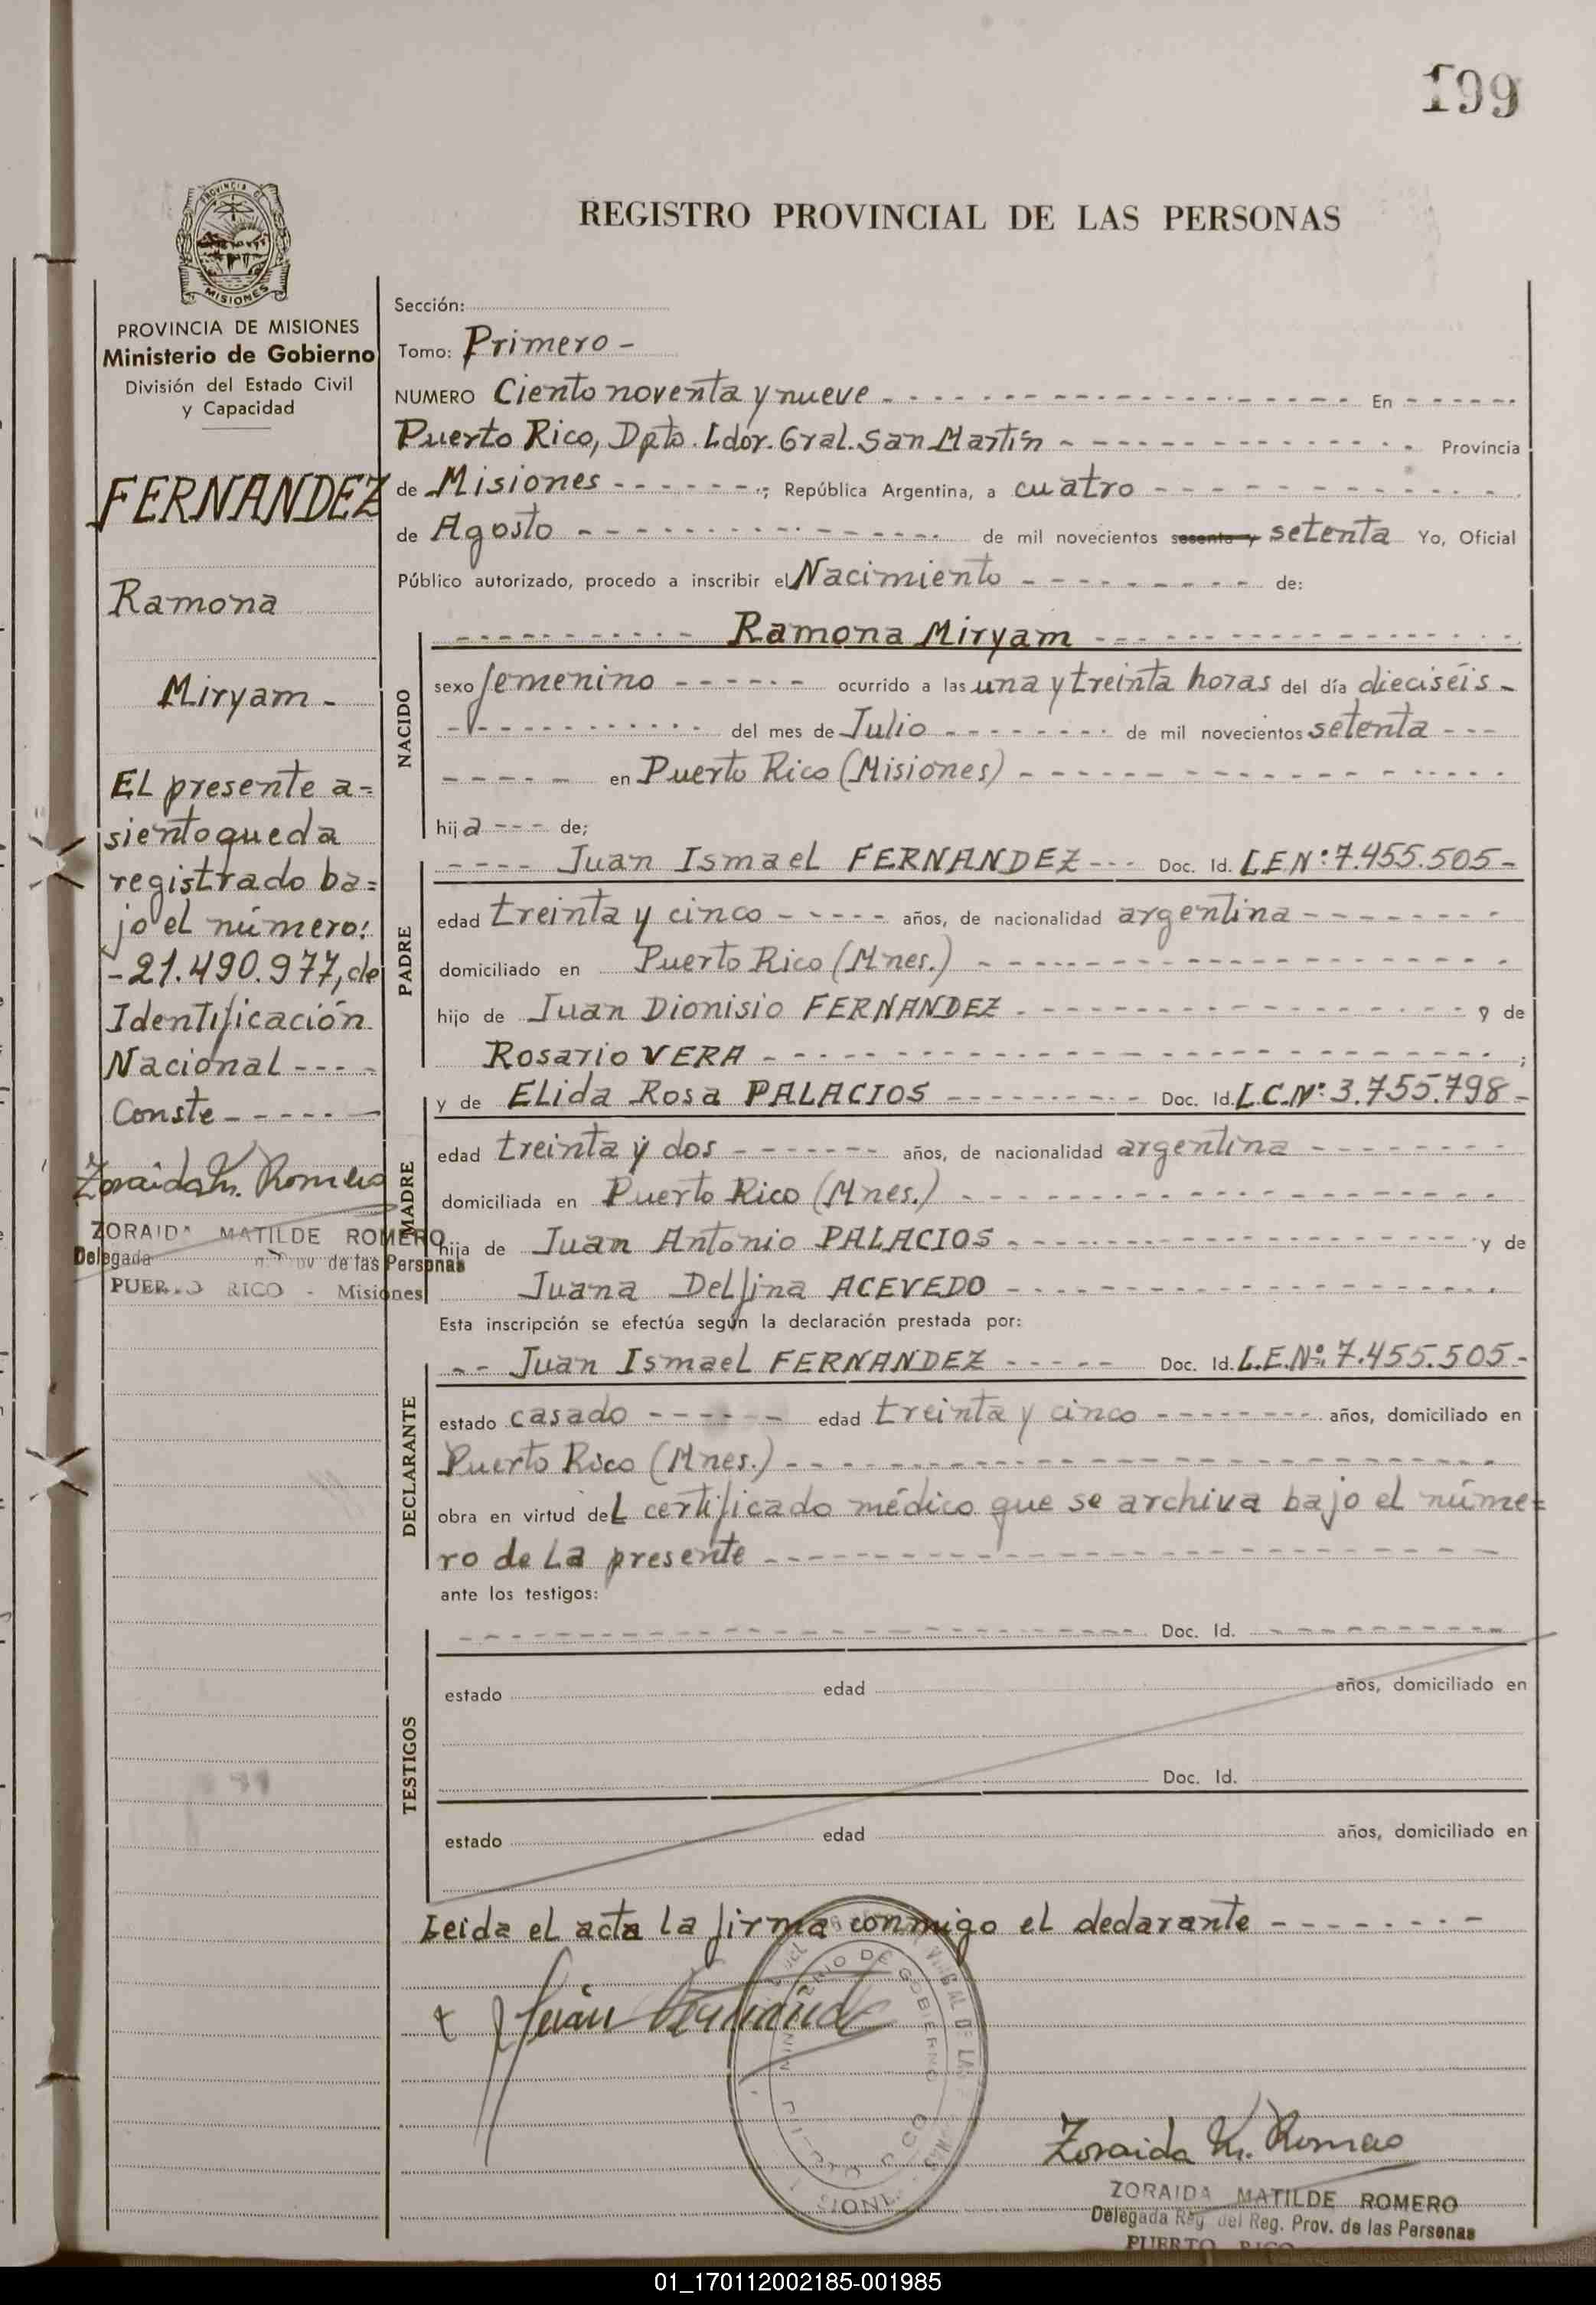 199
PROVINCIA DE MISIONES
REGISTRO PROVINCIAL DE LAS PERSONAS
PROVINCIA DE MISIONES
Ministerio de Gobierno
División del Estado Civil
y Capacidad
FERNANDEZ
Ramona
Miryam -
El presente a=
siento queda
registrado ba=
jo el número:
-21.490.977, de
Identificación
Nacional - - - -
Conste - - - - -
Zoraida M. Romero
ZORAIDA MATILDE ROMERO
Delegada de las Personas
PUERTO RICO - Misiones
Sección:
Tomo: Primero -
NUMERO Ciento noventa y nueve - - - En - - -
Puerto Rico, Dpto. Ldor. Gral. San Martín - - - Provincia
de Misiones - - - ; República Argentina, a cuatro - - -
de Agosto - - - de mil novecientos sesenta y setenta Yo, Oficial
Público autorizado, procedo a inscribir el Nacimiento - - - de:
NACIDO
- - - Ramona Miryam - - -
sexo femenino - - - ocurrido a las una y treinta horas del día dieciséis -
- - - del mes de Julio - - - de mil novecientos setenta - - -
- - - en Puerto Rico (Misiones) - - -
hija - - - de;
PADRE
- - - - Juan Ismael FERNANDEZ - - - Doc. Id. L.E.Nº: 7.455.505 -
edad treinta y cinco - - - años, de nacionalidad argentina - - -
domiciliado en Puerto Rico (Mnes.) - - -
hijo de Juan Dionisio FERNANDEZ - - - y de
Rosario VERA - - - ;
MADRE
y de Elida Rosa PALACIOS - - - Doc. Id. L.C.Nº: 3.755.798 -
edad treinta y dos - - - años, de nacionalidad argentina - - -
domiciliada en Puerto Rico (Mnes.) - - -
hija de Juan Antonio PALACIOS - - - y de
Juana Delfina ACEVEDO - - -
Esta inscripción se efectúa según la declaración prestada por:
DECLARANTE
- - Juan Ismael FERNANDEZ - - - Doc. Id. L.E.Nº: 7.455.505 -
estado casado - - - edad treinta y cinco - - - años, domiciliado en
Puerto Rico (Mnes.) - - -
obra en virtud del certificado médico que se archiva bajo el núme=
ro de la presente - - -
ante los testigos:
TESTIGOS
- - - Doc. Id. - - -
estado edad años, domiciliado en
Doc. Id.
estado edad años, domiciliado en
Leida el acta la firma conmigo el declarante - - -
Juan Fernández
DE GOBIERNO
Zoraida M. Romero
ZORAIDA MATILDE ROMERO
Delegada Reg. del Reg. Prov. de las Personas
PUERTO RICO
01_170112002185-001985